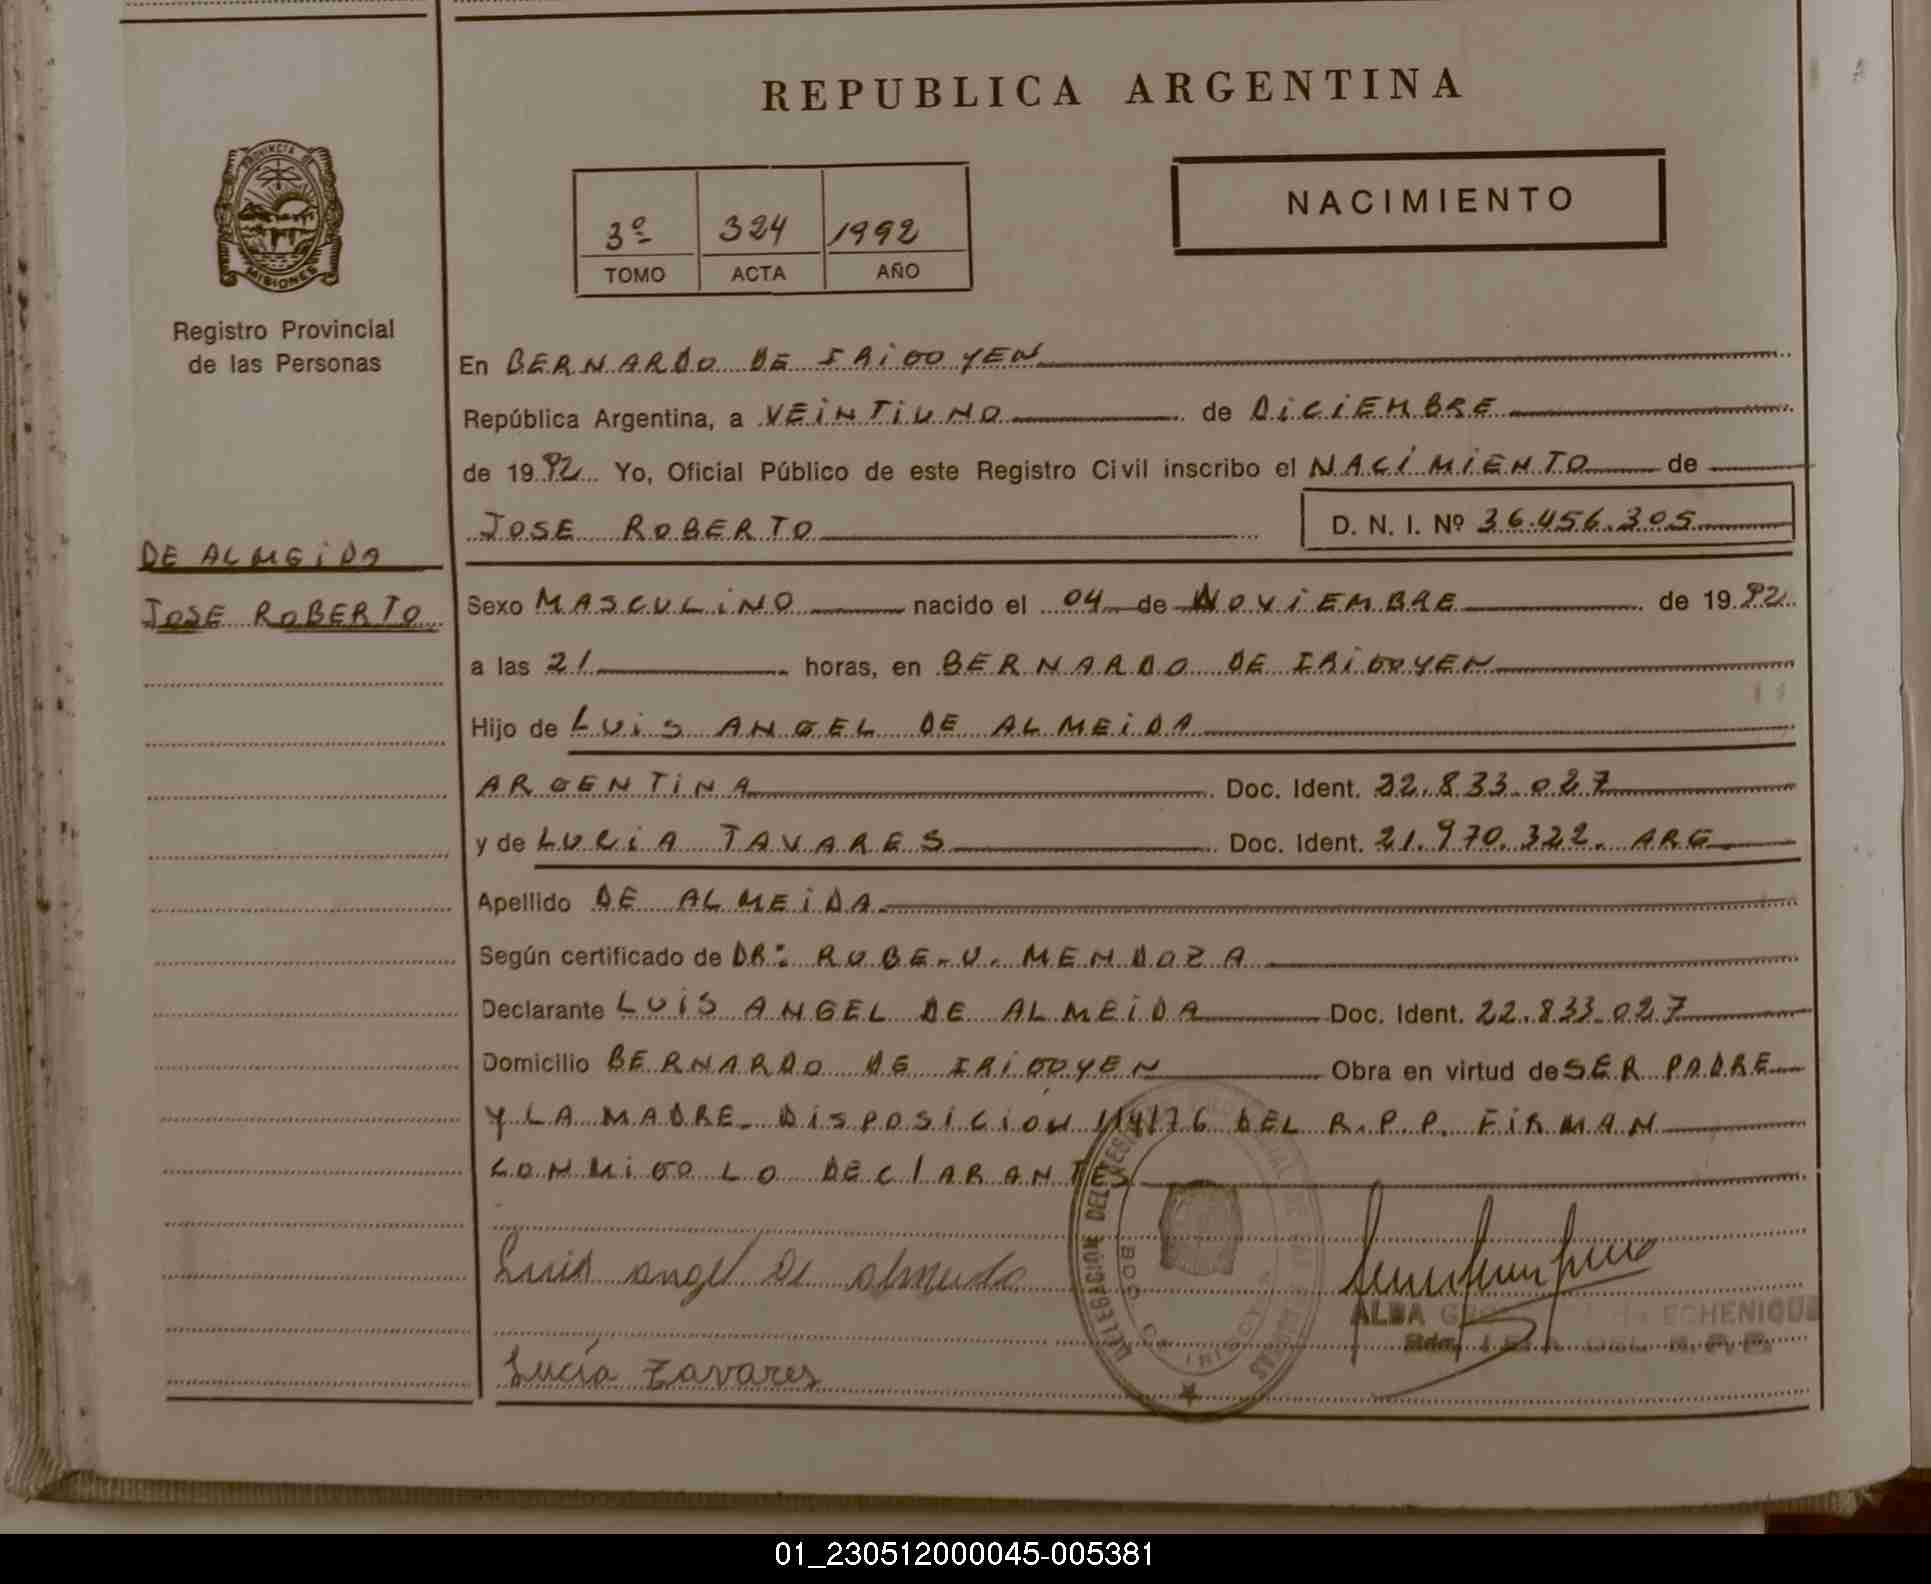 REPUBLICA ARGENTINA
PROVINCIA DE
MISIONES
Registro Provincial
de las Personas
3º 324 1992
TOMO ACTA AÑO
NACIMIENTO
En BERNARDO DE IRIGOYEN
República Argentina, a VEINTIUNO de DICIEMBRE
de 1992 Yo, Oficial Público de este Registro Civil inscribo el NACIMIENTO de
JOSE ROBERTO D. N. I. Nº 36.456.305
DE ALMEIDA
JOSE ROBERTO
Sexo MASCULINO nacido el 04 de NOVIEMBRE de 1992
a las 21 horas, en BERNARDO DE IRIGOYEN
Hijo de LUIS ANGEL DE ALMEIDA
ARGENTINA Doc. Ident. 22.833.027
y de LUCIA TAVARES Doc. Ident. 21.970.322. ARG
Apellido DE ALMEIDA
Según certificado de DR: RUBE.U. MENDOZA
Declarante LUIS ANGEL DE ALMEIDA Doc. Ident. 22.833.027
Domicilio BERNARDO DE IRIGOYEN Obra en virtud de SER PADRE
Y LA MADRE. DISPOSICION 114/76 DEL R.P.P. FIRMAN
CONMIGO LO DECLARANTES
Luis angel De almeida
DELEGACION DEL
ALBA ECHENIQUE
DEL R.P.P.
Lucía Tavares
01_230512000045-005381